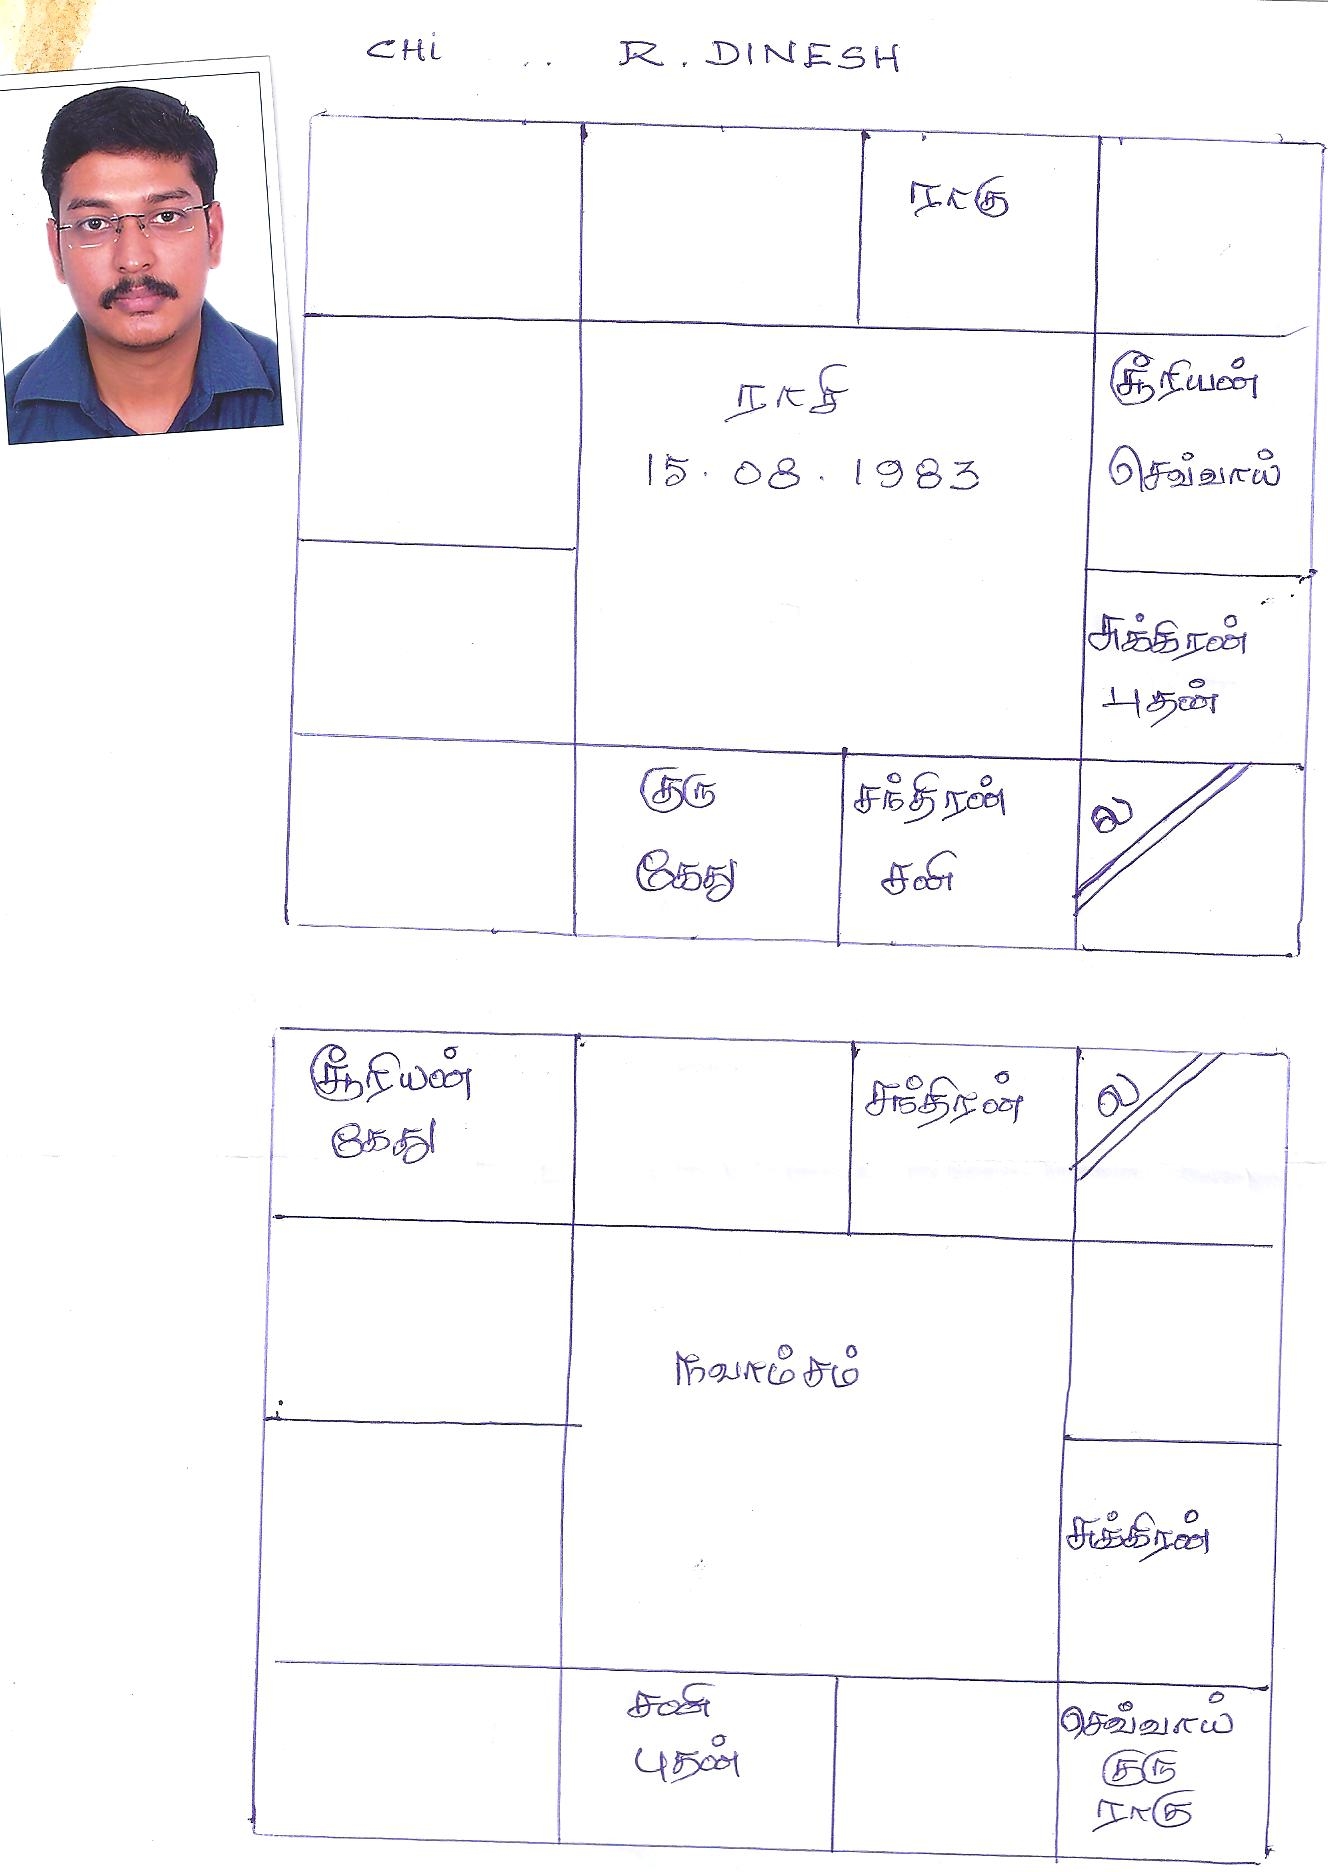 CHi .. R. DINESH
ராகு
ராசி
15.08.1983
சூரியன்
செவ்வாய்
சுக்கிரன்
புதன்
குரு
கேது
சந்திரன்
சனி
ல
சூரியன்
கேது
சந்திரன்
ல
நவாம்சம்
சுக்கிரன்
சனி
புதன்
செவ்வாய்
குரு
ராகு